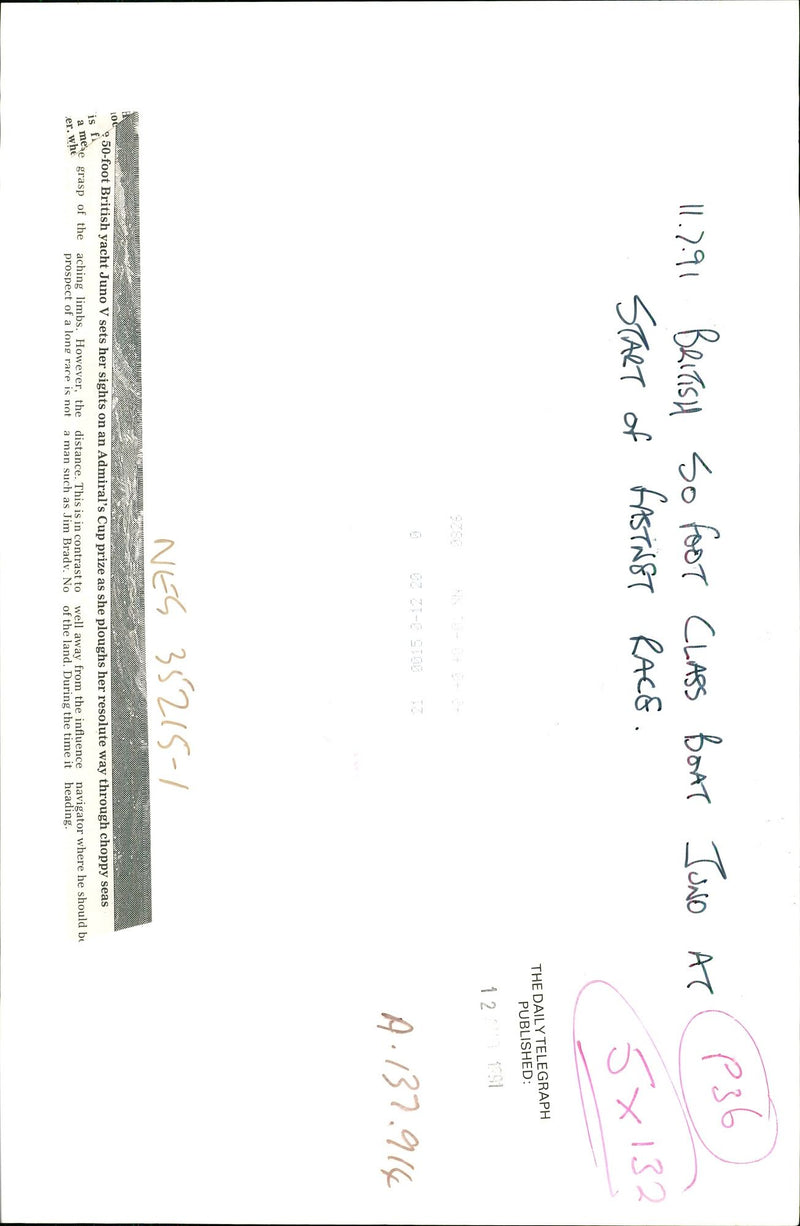 11.7.91 BRITISH 50 FOOT CLASS BOAT JUNO AT
START of FASTNET RACE.
P36
5 X 132
THE DAILY TELEGRAPH
PUBLISHED:
12 1991
A.137.914
NES 35215-1
50-foot British yacht Juno V sets her sights on an Admiral's Cup prize as she ploughs her resolute way through choppy seas
is
a me
er. whe
grasp of the
aching limbs. However, the
prospect of a long race is not
distance. This is in contrast to
a man such as Jim Brady. No
well away from the influence
of the land. During the time it
navigator where he should be
heading.